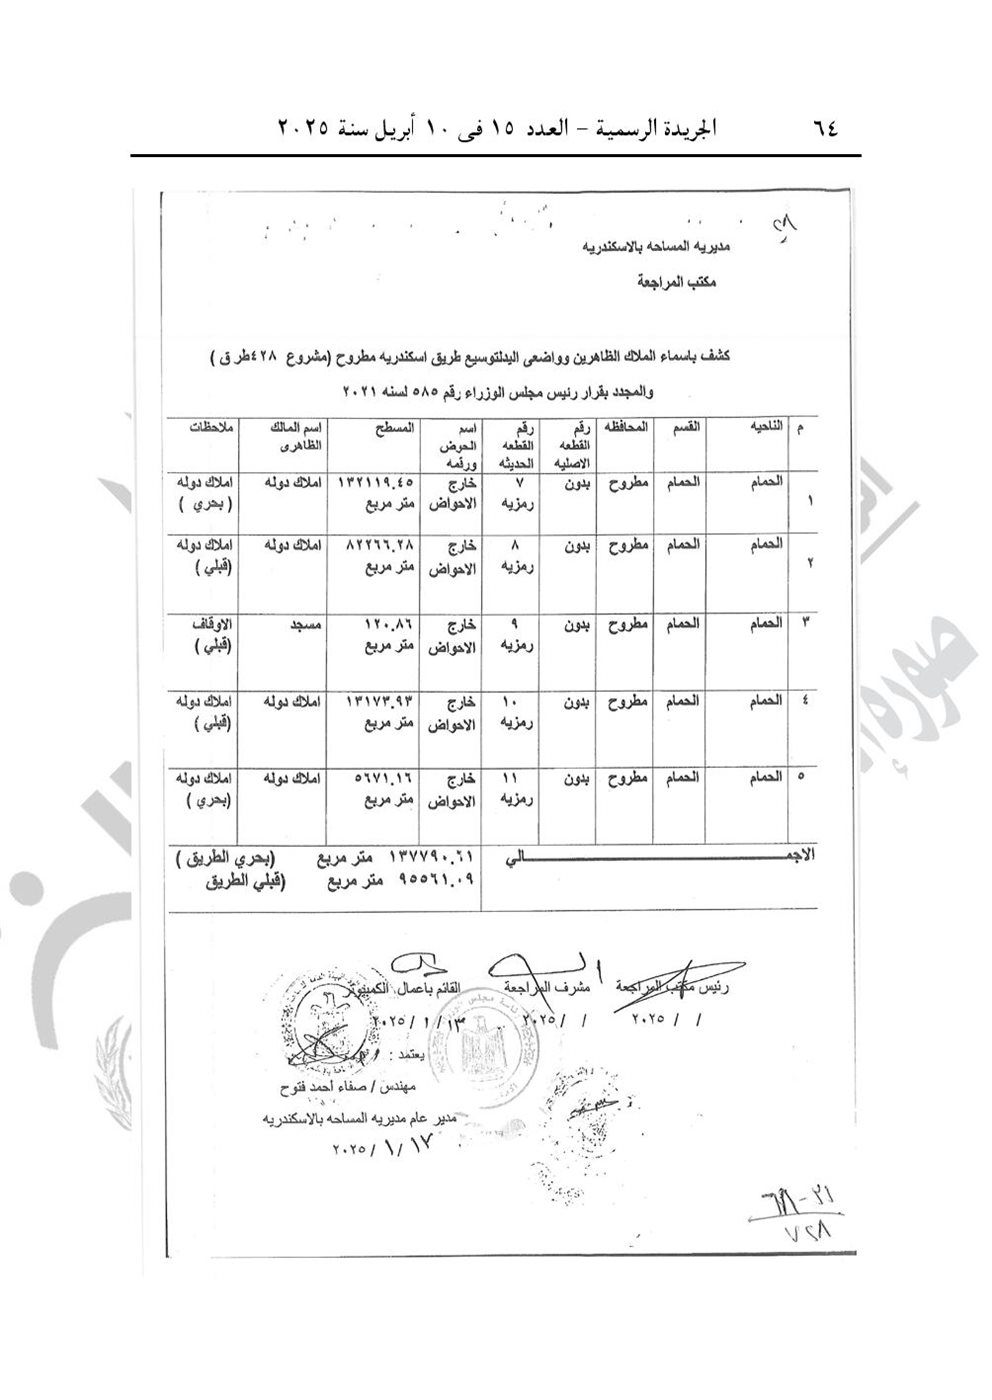 ٦٤ الجريدة الرسمية – العدد ١٥ فى ١٠ أبريل سنة ٢٠٢٥
٢٨
مديريه المساحه بالاسكندريه
مكتب المراجعة
كشف باسماء الملاك الظاهرين وواضعى اليدلتوسيع طريق اسكندريه مطروح (مشروع ٤٢٨طر ق )
والمجدد بقرار رئيس مجلس الوزراء رقم ٥٨٥ لسنه ٢٠٢١
م الناحيه القسم المحافظه رقم القطعه الاصليه رقم القطعه الحديثه اسم الحوض ورقمه المسطح اسم المالك الظاهرى ملاحظات
١ الحمام الحمام مطروح بدون ٧ رمزيه خارج الاحواض ١٣٢١١٩.٤٥ متر مربع املاك دوله املاك دوله ( بحري )
٢ الحمام الحمام مطروح بدون ٨ رمزيه خارج الاحواض ٨٢٢٦٦.٢٨ متر مربع املاك دوله املاك دوله (قبلي )
٣ الحمام الحمام مطروح بدون ٩ رمزيه خارج الاحواض ١٢٠.٨٦ متر مربع مسجد الاوقاف (قبلي )
٤ الحمام الحمام مطروح بدون ١٠ رمزيه خارج الاحواض ١٣١٧٣.٩٣ متر مربع املاك دوله املاك دوله (قبلي )
٥ الحمام الحمام مطروح بدون ١١ رمزيه خارج الاحواض ٥٦٧١.١٦ متر مربع املاك دوله املاك دوله (بحري )
الاجمـــــــــــالي ١٣٧٧٩٠.٦١ متر مربع (بحري الطريق )
٩٥٥٦١.٠٩ متر مربع (قبلي الطريق
رئيس مكتب المراجعة مشرف المراجعة القائم باعمال الكمبيوتر
/ / ٢٠٢٥ / / ٢٠٢٥ ١٣ / ١ / ٢٠٢٥
يعتمد :
مهندس / صفاء أحمد فتوح
مدير عام مديريه المساحه بالاسكندريه
١٧ / ١ / ٢٠٢٥